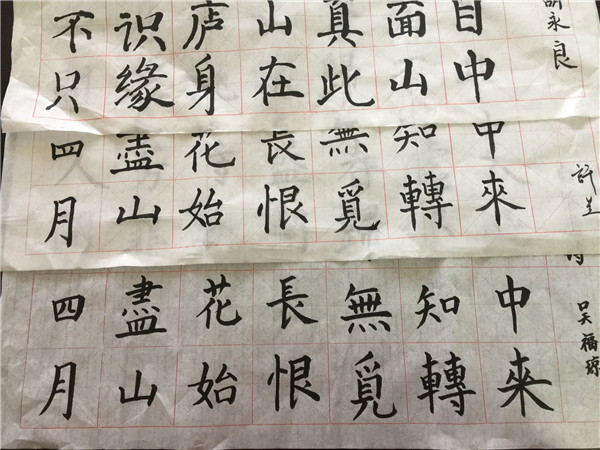 不识庐山真面目
只缘身在此山中
永良
四月
盡山
花始
長恨
無覓
知轉
中來
許
四月
盡山
花始
長恨
無覓
知轉
中來
吴福